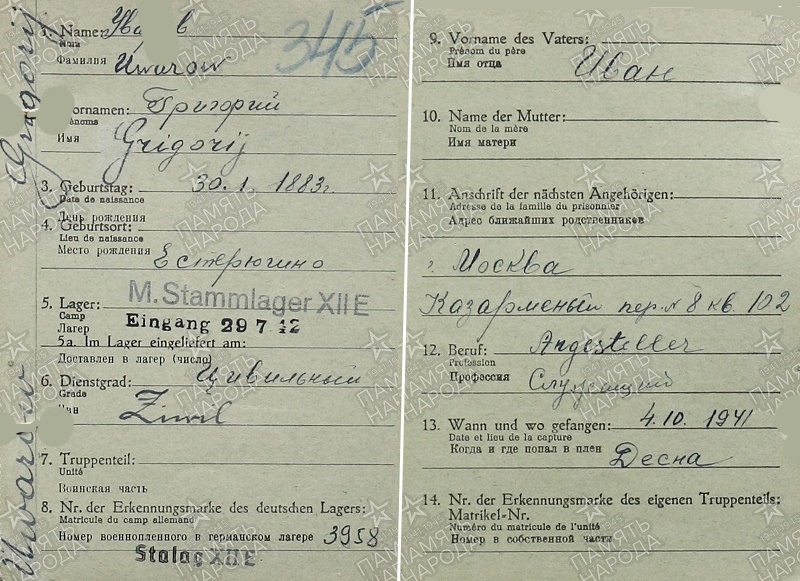 Grigorij
Uwarow
1. Name:
Nom
Фамилия Uwarow
345
Vornamen: Григорий
Prénoms
Имя Grigorij
3. Geburtstag: 30. 1. 1883г.
Date de naissance
День рождения
4. Geburtsort:
Lieu de naissance
Место рождения Естерюгино
5. Lager: M. Stammlager XII E
Camp
Лагерь Eingang 29 7. 42
5a. Im Lager eingeliefert am:
Доставлен в лагерь (число)
6. Dienstgrad: Цивильный
Grade
Чин Ziwil
7. Truppenteil:
Unité
Воинская часть
8. Nr. der Erkennungsmarke des deutschen Lagers:
Matricule du camp allemand
Номер военнопленного в германском лагере 3958
Stalag XII E
9. Vorname des Vaters:
Prénom du père
Имя отца Иван
10. Name der Mutter:
Nom de la mère
Имя матери
11. Anschrift der nächsten Angehörigen:
Adresse de la famille du prisonnier
Адрес ближайших родственников
г. Москва
Казарменый пер. № 8 кв. 102
12. Beruf: Angesteller
Profession
Профессия Служащий
13. Wann und wo gefangen: 4. 10. 1941
Date et lieu de la capture
Когда и где попал в плен Десна
14. Nr. der Erkennungsmarke des eigenen Truppenteils:
Matrikel-Nr.
Numéro du matricule de l'unité
Номер в собственной части
ПАМЯТЬ НАРОДА